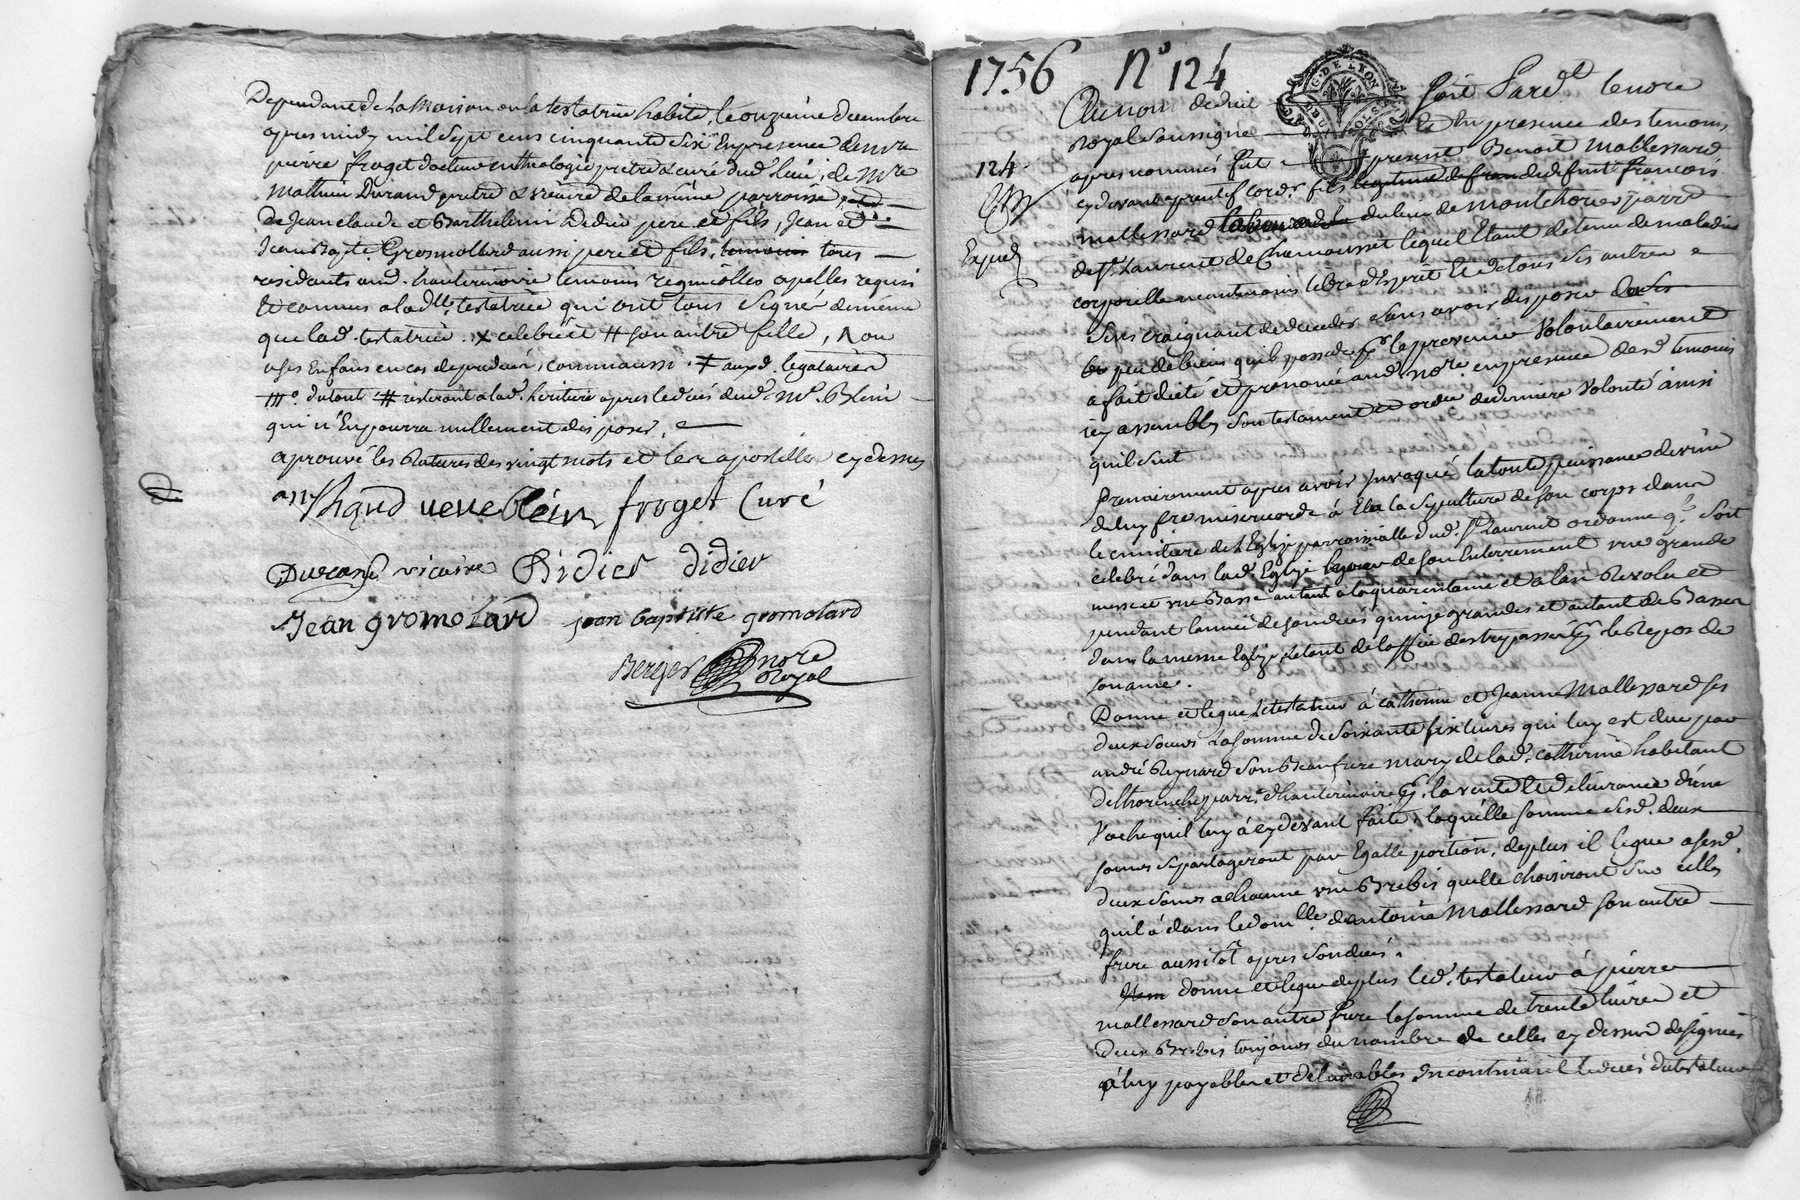 Dependant de la Maison ou la testatrice habite, le onzieme decembre
apres midy mil sept cens cinquante six En presence de mre
pierre froget docteur en theologie pretre & curé dud. lieu, de mre
Mathieu Durand pretre & vicaire de la même parroisse
De Jean claude et Barthelemi Dedier pere et fils, Jean et
Jean Bapte. Gromollard aussi pere et fils, temoins tous
residants aud. hauterivoire temoins requis
et connus a lad. testatrice qui ont tous signé de même
que lad. testatrice. x celebré et # son autre fille, ou
a ses Enfans en cas de predecés, comme aussi ≠ auxd. legataires
du tout # resteront a lad. heritiere apres le decés dud. Mr. Blein
qui n'En pourra nullement disposer,
aprouvé les Ratures des vingt mots et les apostilles cy dessus
veuve blein froget Curé
Durand vicaire Didier didier
Jean gromolard jean baptiste gromolard
Berger nore
Royal
1756 No 124
GE. DE LYON
Par d. le nore
royal soussigné Et En presence des temoins
124
apres nommés fut present Benoit Mallessard
cy devant fils legitime de defunt francois
mallessard du lieu de montchorier parr
Exped
de St. Laurent de Chamousset lequel Etant detenu de maladie
corporelle neantmoins libre d'Esprit Et de tous ses autres
sens craignant de deceder sans avoir disposé de ses
peu de biens qu'il possede, le presence Volontairement
a fait dicté et prononcé aud. nore. en presence desd. temoins
icy assemblés son testament et ordre de derniere Volonté ainsi
qu'il suit
Premierement apres avoir Invoqué la toute puissance divine
la sepulture de son corps dans
le cimitiere de l'Eglise parroissialle dud. St Laurent ordonne qu. soit
celebré dans lad. Eglise le jour de son Enterrement une grande
messe et une Basse autant a la quarantaine et a l'an Revolu et
pendant l'année de son decés quinze grandes et autant de Basses
dans la meme Eglise, le tout de l'office des trepassés pr. le Repos de
son ame.
Donne et legue le testateur à catherine et Jeanne Mallessard ses
deux sœurs la somme de soixante six livres qui luy est due par
andré Reynard son Beaufrere mary de lad. catherine habitant
parr. d'hauterivoire pr. la vente et delivrance d'une
Vache qu'il luy à cy devant faite, laquelle somme sesd. deux
sœurs se partageront par Egalle portion, de plus il legue a sesd.
deux sœurs a chacune une Brebis qu'elle choisiront sur celles
qu'il à dans le domlle. d'antoine Mallessard son autre
frere aussitôt apres son decés.
Item donne et legue de plus led. testateur à pierre
mallessard son autre frere la somme de trente livres et
deux Brebis toujours du nombre de celles cy dessus designées
à luy payables et delivrables Incontinent le decés du testateur